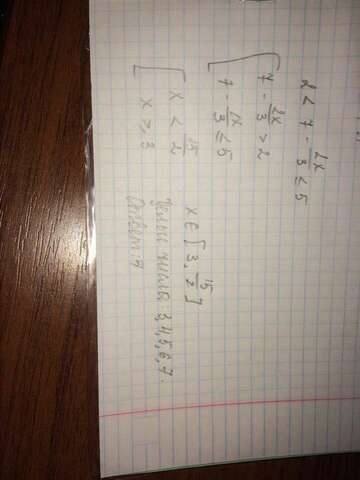 2 < 7 - 2x/3 ≤ 5
{ 7 - 2x/3 > 2
7 - 2x/3 ≤ 5
[ x < 15/2
x ≥ 3
x ∈ [3, 15/2]
Целые числа: 3,4,5,6,7.
Ответ: 7